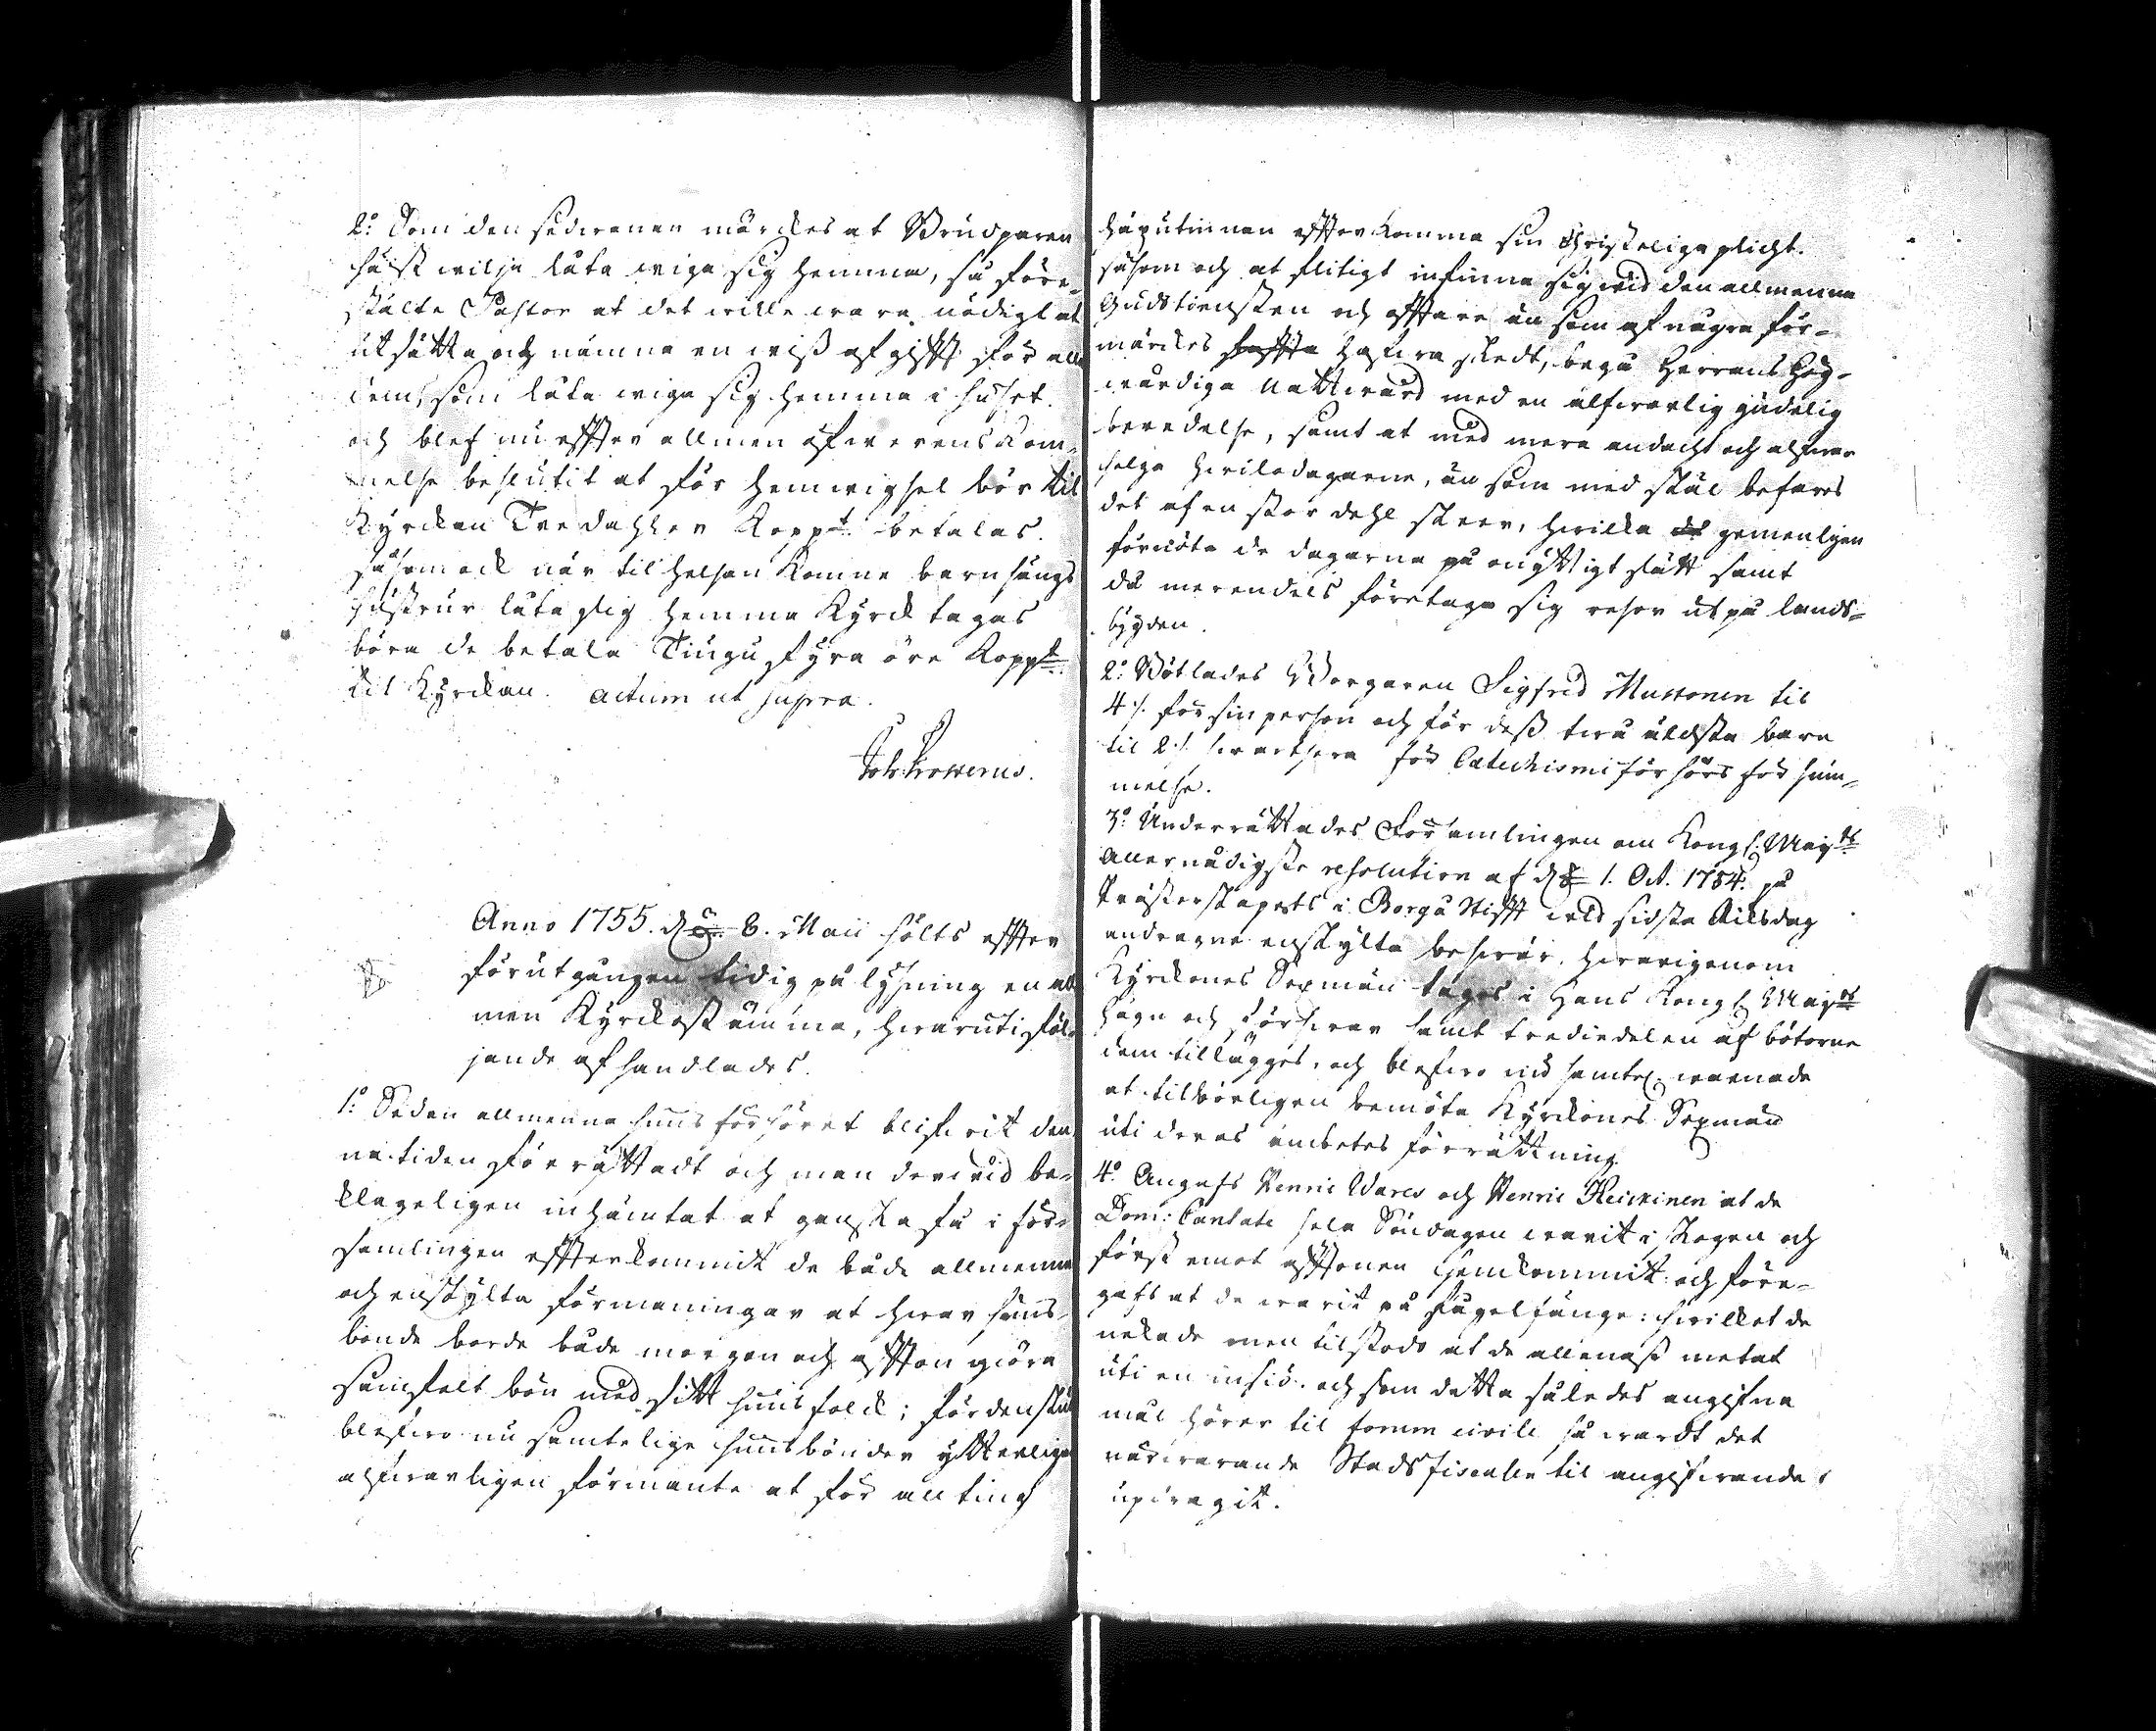 2:o Som den sedwanan märckes at Brudparen
hälst wilja låta wiga sig hemma, så före-
stälte Pastor at det wille wara nödigt at
utsätta och nämna en wiss afgifft för all
dem, som låta wiga sig hemma i huset.
och blef nu effter allmen öfwerenskom-
melse beslutit at för hemwigsel bör til
Kyrckan Tre dahler Kopp:t betalas.
såsom ock när til helsan komne barnsängs
hustrur låta sig hemma Kyrcktagas
böra de betala Tiugu fyra öre Kopp:t
til Kyrckan. Actum ut supra.
Anno 1755. d. 8. Maii hölts effter
förutgången tidig pålysning en all
men Kyrckostämma, hwaruti föl-
jande afhandlades.
1:o Sedan allmenna huusförhöret blifwit den
na tiden förrättadt och man derwid be-
klageligen inhämtat at ganska få i för-
samlingen effterkommit de både allmenna
och enskylta förmaningar at hwar huus-
bonde borde både morgon och affton giöra
samfält bön med sitt huusfolck; fördenskul
blefwo nu samtelige huusbönder ytterliga
alfwarligen förmante at för all ting
häruti effterkomma sin Christeliga plicht.
såsom och at flitigt infinna sig wid den allmenna
Gudstiensten och offtare än som af några för-
märckes hafwa skedt, begå Herrans Hög-
wärdiga Nattward med en alfwarlig gudelig
beredelse, samt at med mera andacht och alfwar
helga hwilodagarne, än som med skäl befares
det af en stor dehl skeer, hwilka gemenligen
förnöta de dagarna på onyttigt sätt samt
då merendels företaga sig resor ut på lands-
bygden.
2:o Bötlades Borgaren Sigfrid Mustonen til
4 /. för sin person och för dess twå äldsta barn
til 2 /. hwarthera för Catechismi förhörs försum-
melse.
3:o Underrättades Församlingen om Kongl. Maij:ts
Allernådigste resolution af d. 1. Oct. 1754. på
Prästerskapets i Borgå Stifft wid sidsta Riksdag
andragne enskylta beswär. hwarigenom
Kyrckones Sexmän tages i Hans Kongl. Maij:ts
hägn och förswar samt trediedelen af böterne
dem tillägges. och blefwo wid samtel. warnade
at tilbörligen bemöta Kyrckones Sexmän
uti deras ämbetes förrättning.
4:o Angafs Henric Wares och Henric Heickinen at de
Dom: Cantate hela Söndagen warit i skogen och
först emot afftonen hemkommit och före-
gafs at de warit på fugelfänge: hwilket de
nekade men tilstodo at de allenast metat
uti en insiö. och som detta således angifna
mål hörer til forum civile så wardt det
närwarande Stads fiscalen til angifwande
updragit.